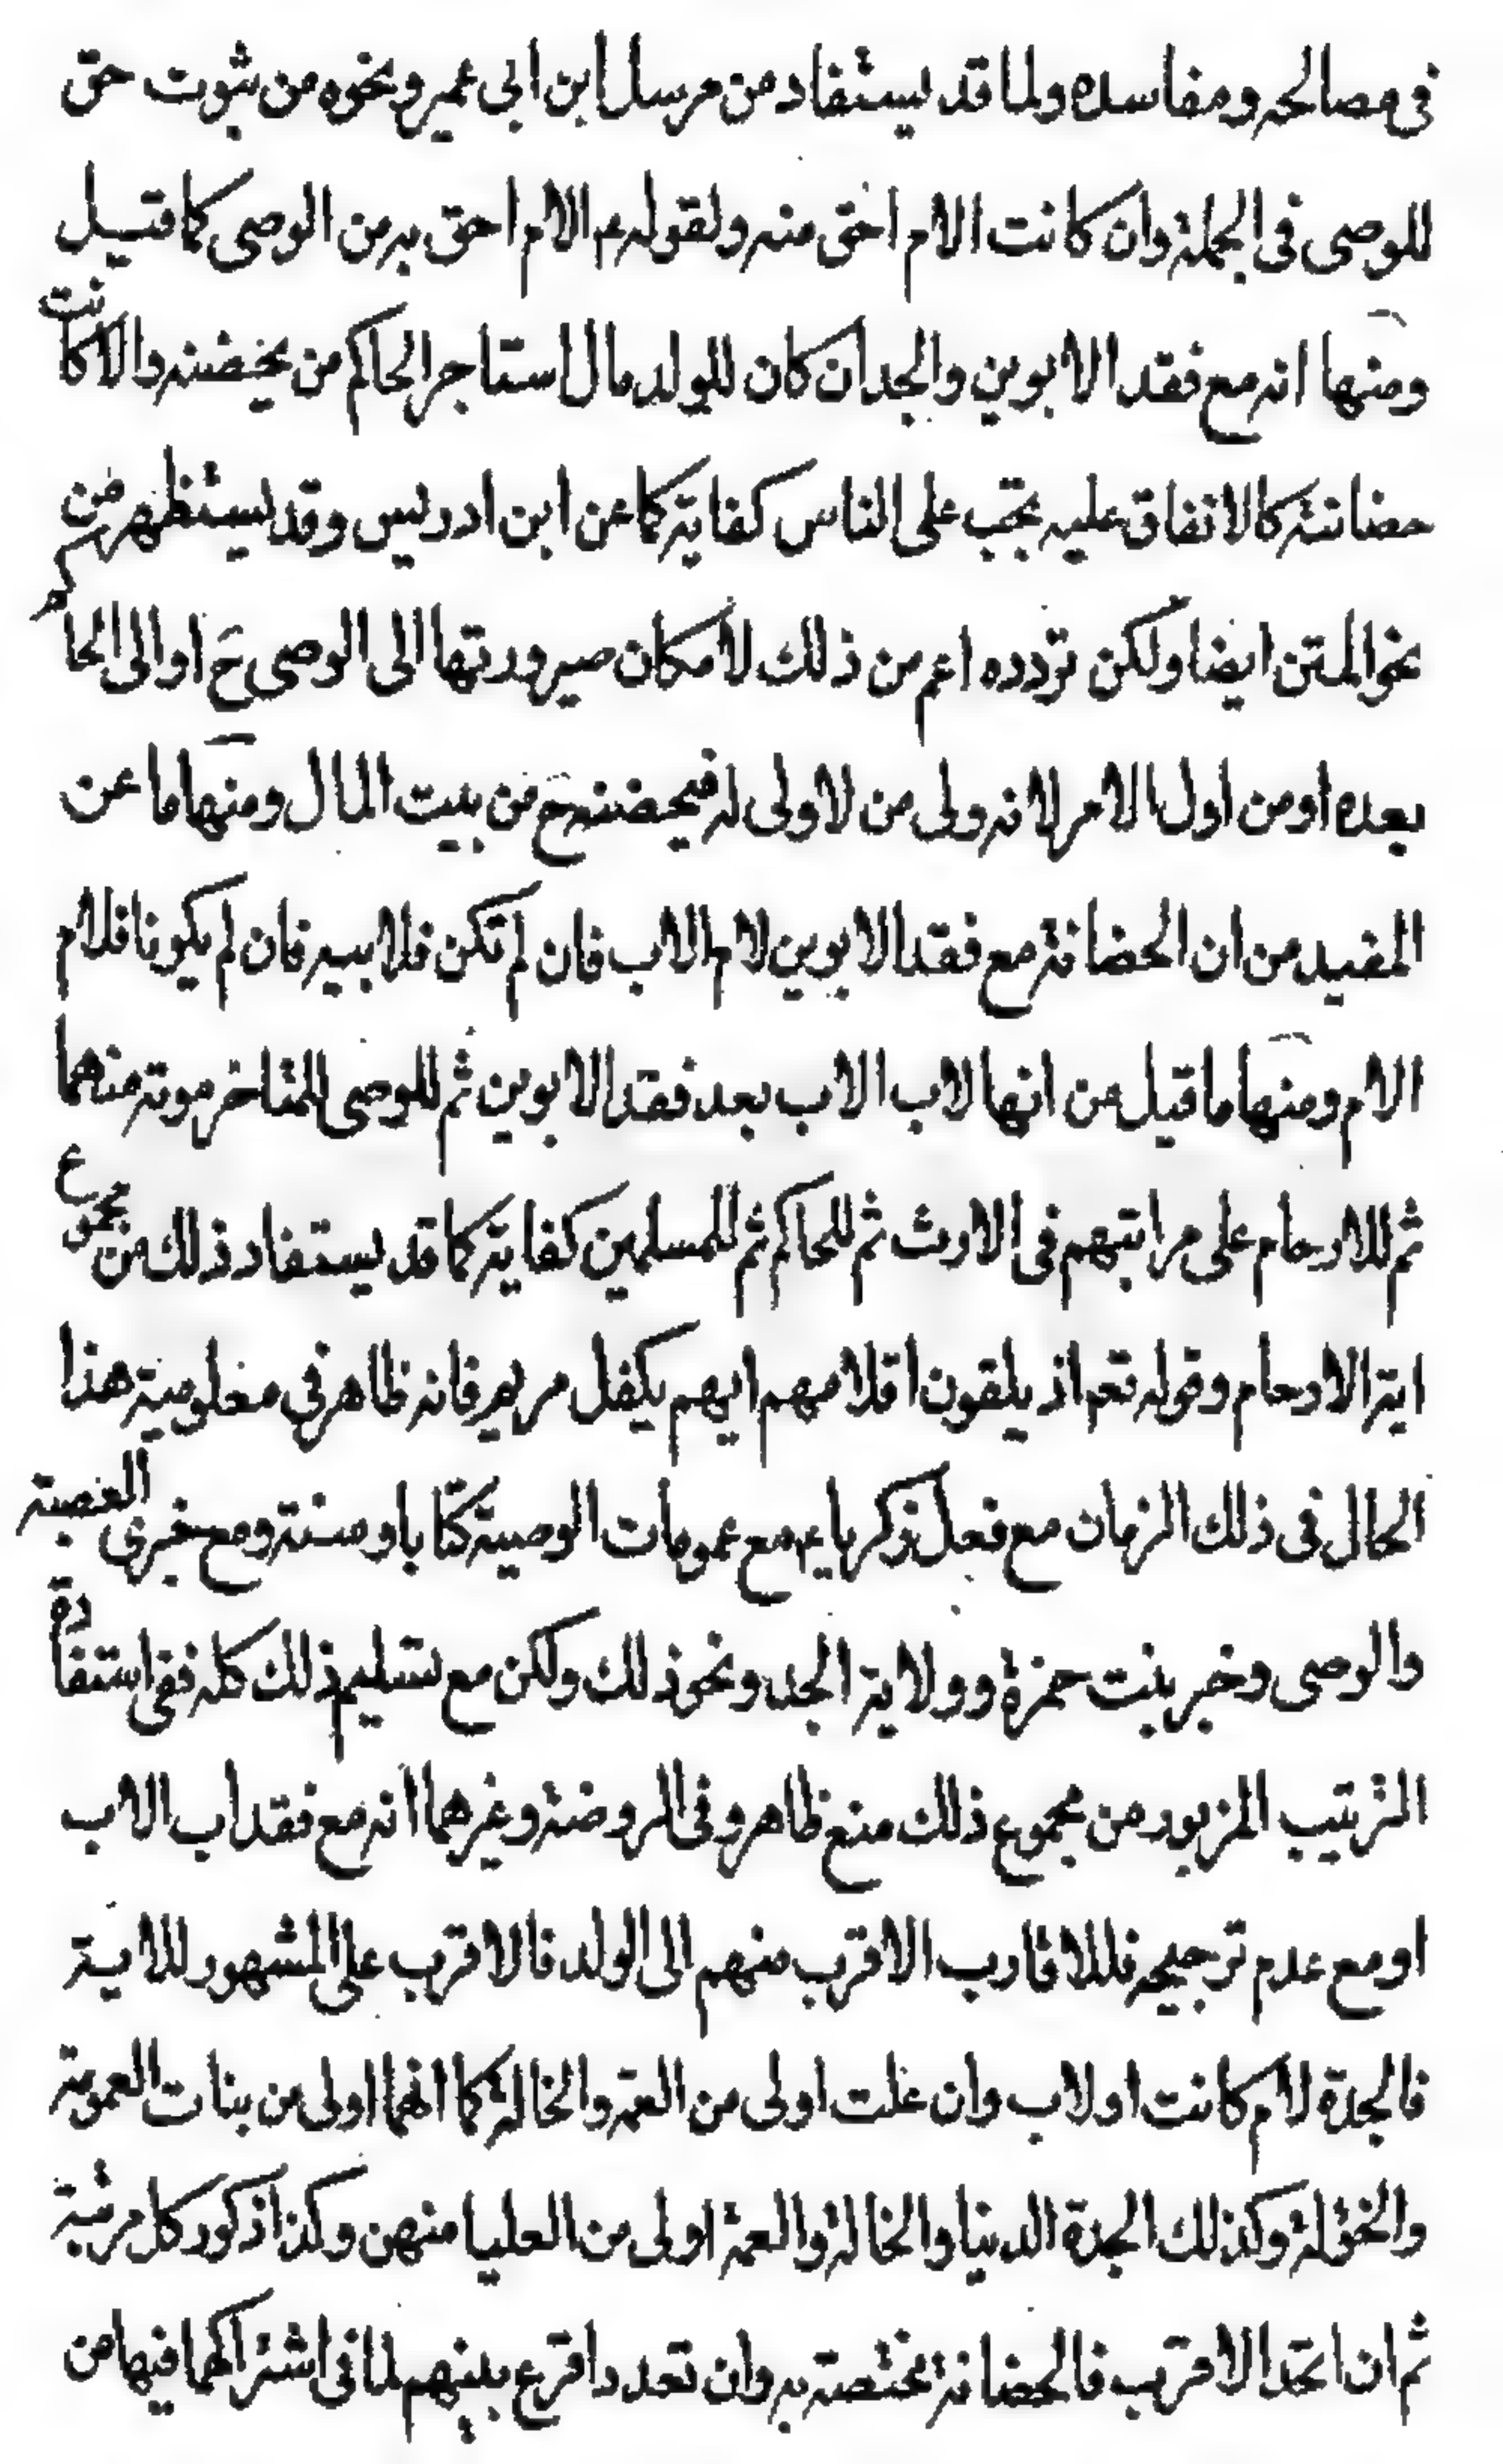 فى مصالحه ومفاسده ولما قد يستفاد من مرسل ابن ابى عمير ونحوه من ثبوت حق
للوصى فى الجملة وان كانت الام احق منه ولقوله ع الام احق به من الوصى كما قيل
ومنها انه مع فقد الابوين والجد ان كان للولد مال استاجر الحاكم من يحضنه والا كانت
حضانته كالانفاق عليه تجب على الناس كفاية كما عن ابن ادريس وقد يستظهر من
نحو المتن ايضا ولكن تردده اعم من ذلك لامكان صيرورتها الى الوصى ح او الى الحاكم
بعده او من اول الامر لانه ولى من لا ولى له فيحضنه ح من بيت المال ومنها ما عن
المفيد من ان الحضانة مع فقد الابوين لام الاب فان لم تكن فلابيه فان لم يكونا فلام
الام ومنها ما قيل من انها لاب الاب بعد فقد الابوين ثم للوصى للمتاخر موته منهما
ثم للارحام على مراتبهم فى الارث ثم للحاكم ثم للمسلمين كفاية كما قد يستفاد ذلك من مجموع
اية الارحام وقوله تعم اذ يلقون اقلامهم ايهم يكفل مريم فانه ظاهر في معلومية هذا
الحال فى ذلك الزمان مع فعل زكرياء ع مع عمومات الوصية كتابا وسنة ومع خبرى العصبة
والوصى وخبر بنت حمزة وولاية الجد ونحو ذلك ولكن مع تسليم ذلك كله ففى استفادة
الترتيب المزبور من مجموع ذلك منع ظاهر وفى الروضة وغيرهما انه مع فقد اب الاب
او مع عدم ترجيحه فللاقارب الاقرب منهم الى الولد فالاقرب على المشهور للاية
فالجدة لام كانت او لاب وان علت اولى من العمة والخالة كما انهما اولى من بنات العمومة
والخؤلة وكذلك الجدة الدنيا والخالة والعمة اولى من العليا منهن وكذا ذكور كل مرتبة
ثم ان اتحد الاقرب فالحضانة مختصة به وان تعدد اقرع بينهم لما فى اشتراكها فيها من